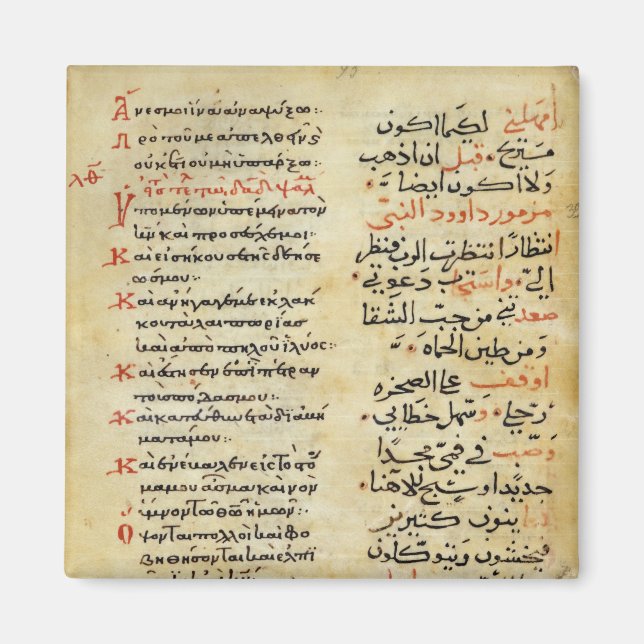 Ἄνες μοι ἵνα ἀναψύξω:
Πρὸ τοῦ με ἀπελθην
οὐκέτι οὐ μὴ ὑπάρξω:
λθ
τῶ δαδ ψαλ
Ὑπομένων ὑπέμηνα τὸν
κν καὶ προσέσχε μοι:
Καὶ εἰσήκουσε τῆς δεήσε
ώς μου:
Καὶ ἀνήγαγέ με ἐκ λάκ
κου ταλαιπωρίας
καὶ ἀπὸ πηλοῦ ἰλύος:
Καὶ ἔστησεν ἐπὶ πέτραν
τοὺς πόδας μου:
Καὶ τὰ διαβή
ματά μου:
Καὶ ἐνέβαλεν εἰς τὸ στό
μα μου ἆσμα καινόν
ὕμνον τῶ θῶ ἡμῶν:
Ὄψονται πολλοὶ καὶ φο
βηθήσονται καὶ ἐλπι
امهلني لكيما اكون
مستريح. قبل ان اذهب
ولا اكون ايضا
مزمور داوود النبي
انتظارًا انتظرت الرب فنظر
اليّ. واستجاب دعوتي
صعدني من جبّ الشقا
ومن طين الحماه
اوقف على الصخره
رجليّ. وسهل خطاي
وصب في فمي مجدًا
جديدًا وسبح لالاهنا
ينون كثيرين
فيخشون ويتوكلون